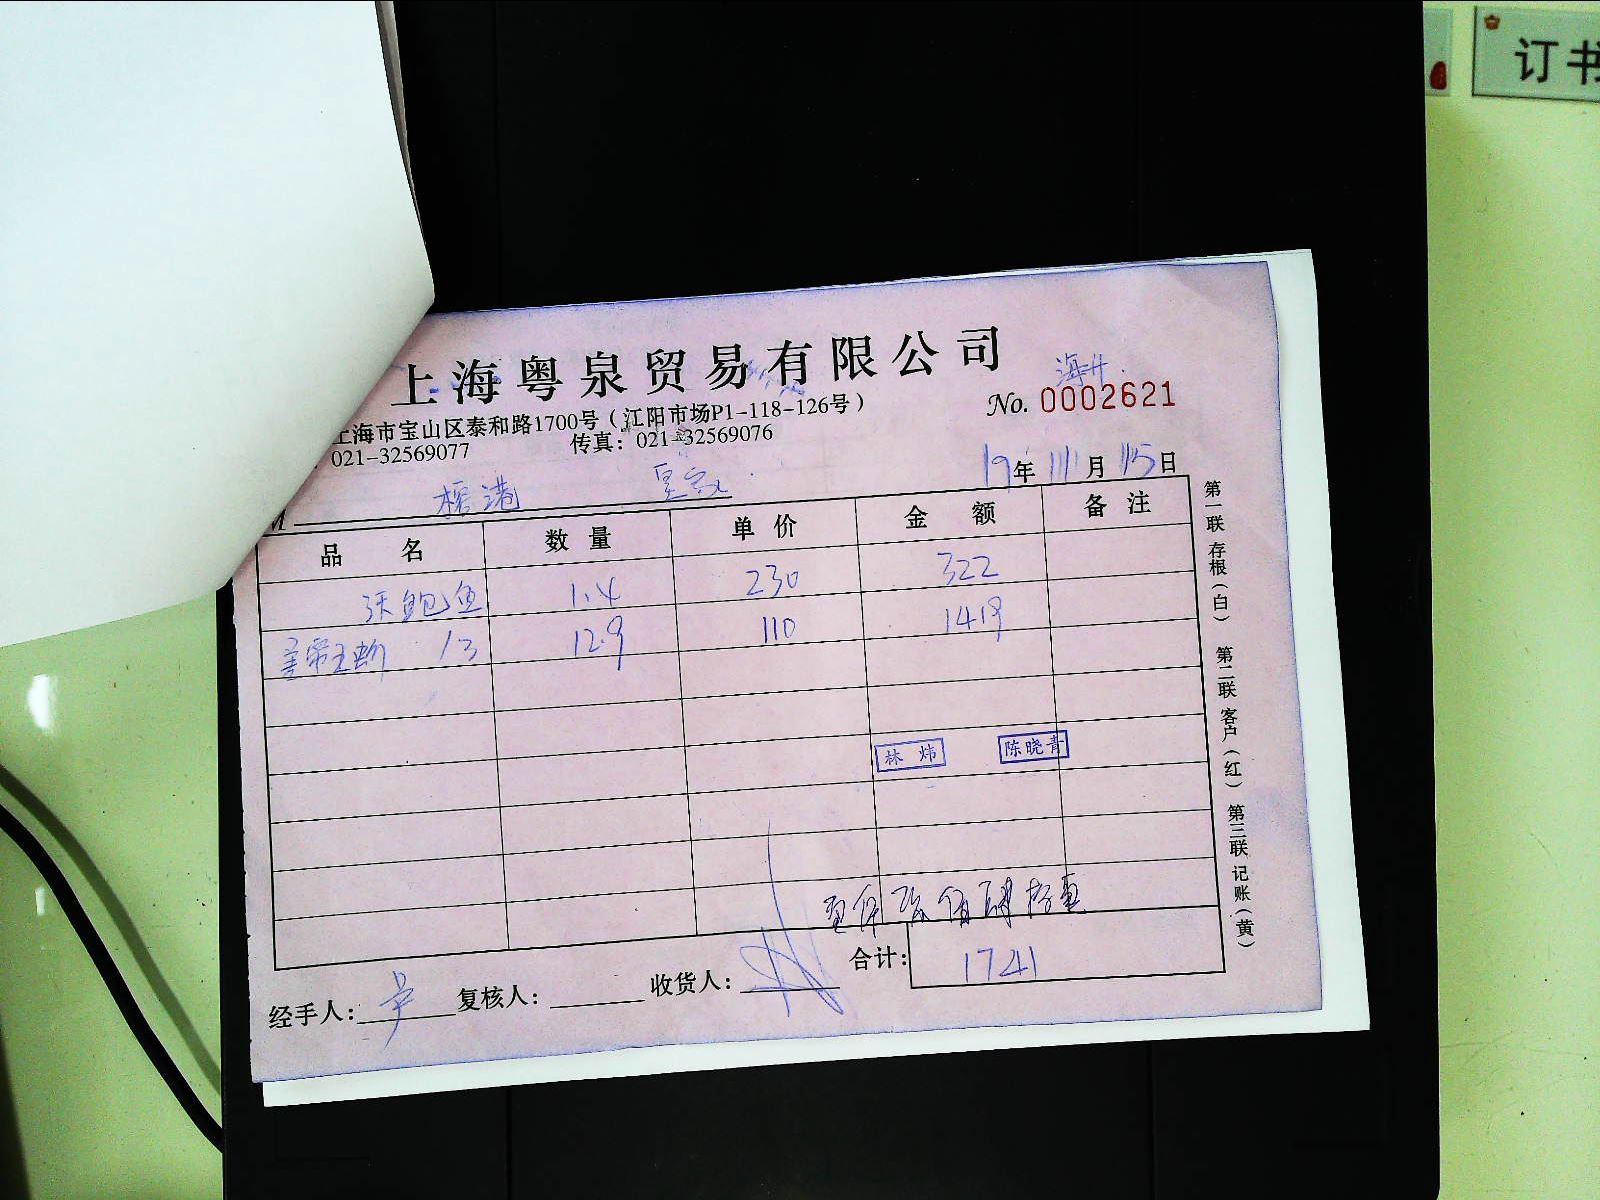 订书
上海粤泉贸易有限公司
海
No. 0002621
上海市宝山区泰和路1700号（江阳市场P1-118-126号）
021-32569077 传真：021-32569076
港 皇家
19年 11月 15日
品 名 数 量 单 价 金 额 备 注
鲍鱼 1.4 230 322
12.9 110 1419
林 炜 陈晓青
合计： 1741
经手人： 复核人： 收货人：
第一联 存根（白） 第二联 客户（红） 第三联 记账（黄）